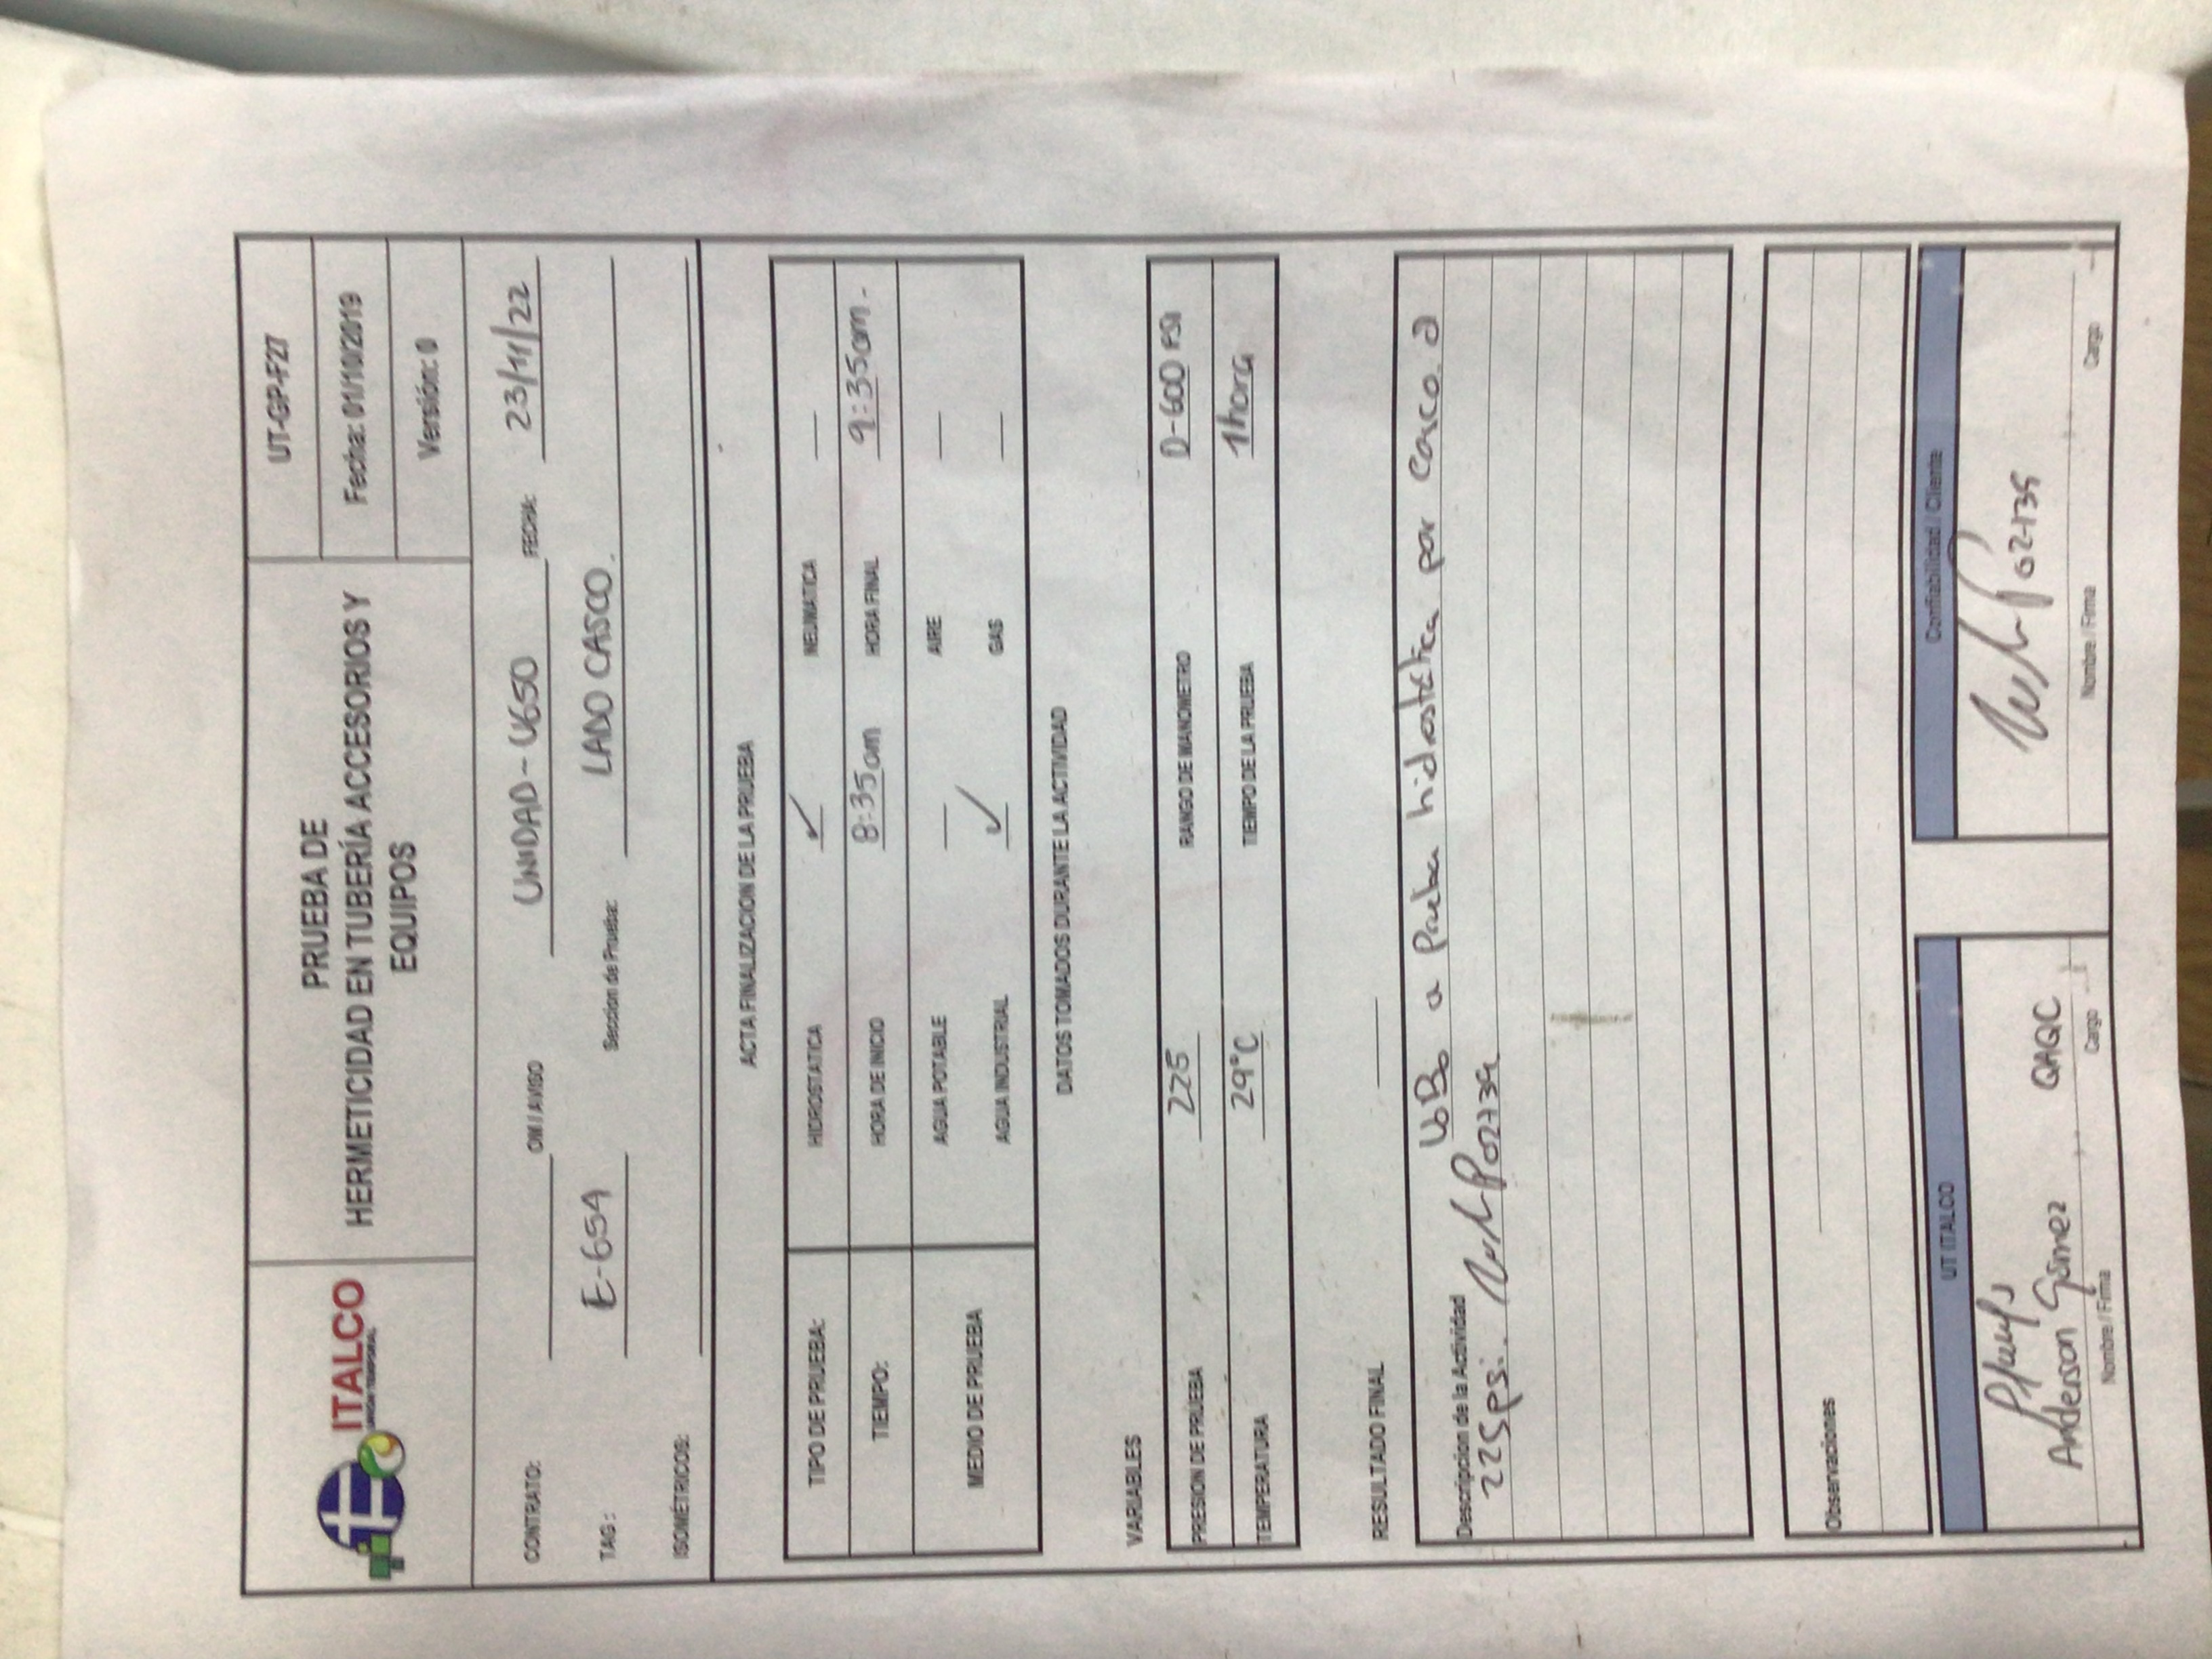 ITALCO
UNION TEMPORAL
PRUEBA DE
HERMETICIDAD EN TUBERÍA ACCESORIOS Y
EQUIPOS
UT-GP-F27
Fecha: 01/10/2019
Versión: 0
CONTRATO: OM / AVISO UNIDAD - U650 FECHA: 23/11/22
TAG: E-654 Seccion de Prueba: LADO CASCO.
ISOMÉTRICOS:
ACTA FINALIZACION DE LA PRUEBA
TIPO DE PRUEBA: HIDROSTATICA ✓ NEUMATICA —
TIEMPO: HORA DE INICIO 8:35am HORA FINAL 9:35am.
MEDIO DE PRUEBA AGUA POTABLE — AIRE —
AGUA INDUSTRIAL ✓ GAS —
DATOS TOMADOS DURANTE LA ACTIVIDAD
VARIABLES
PRESION DE PRUEBA 225 RANGO DE MANOMETRO 0-600 PSI
TEMPERATURA 29°C TIEMPO DE LA PRUEBA 1hora
RESULTADO FINAL
Descripcion de la Actividad VoBo a Prueba hidrostática por Casco. a
225psi.
Observaciones
UT ITALCO
Anderson Gómez QAQC
Nombre / Firma Cargo
Confiabilidad / Cliente
Nombre / Firma Cargo